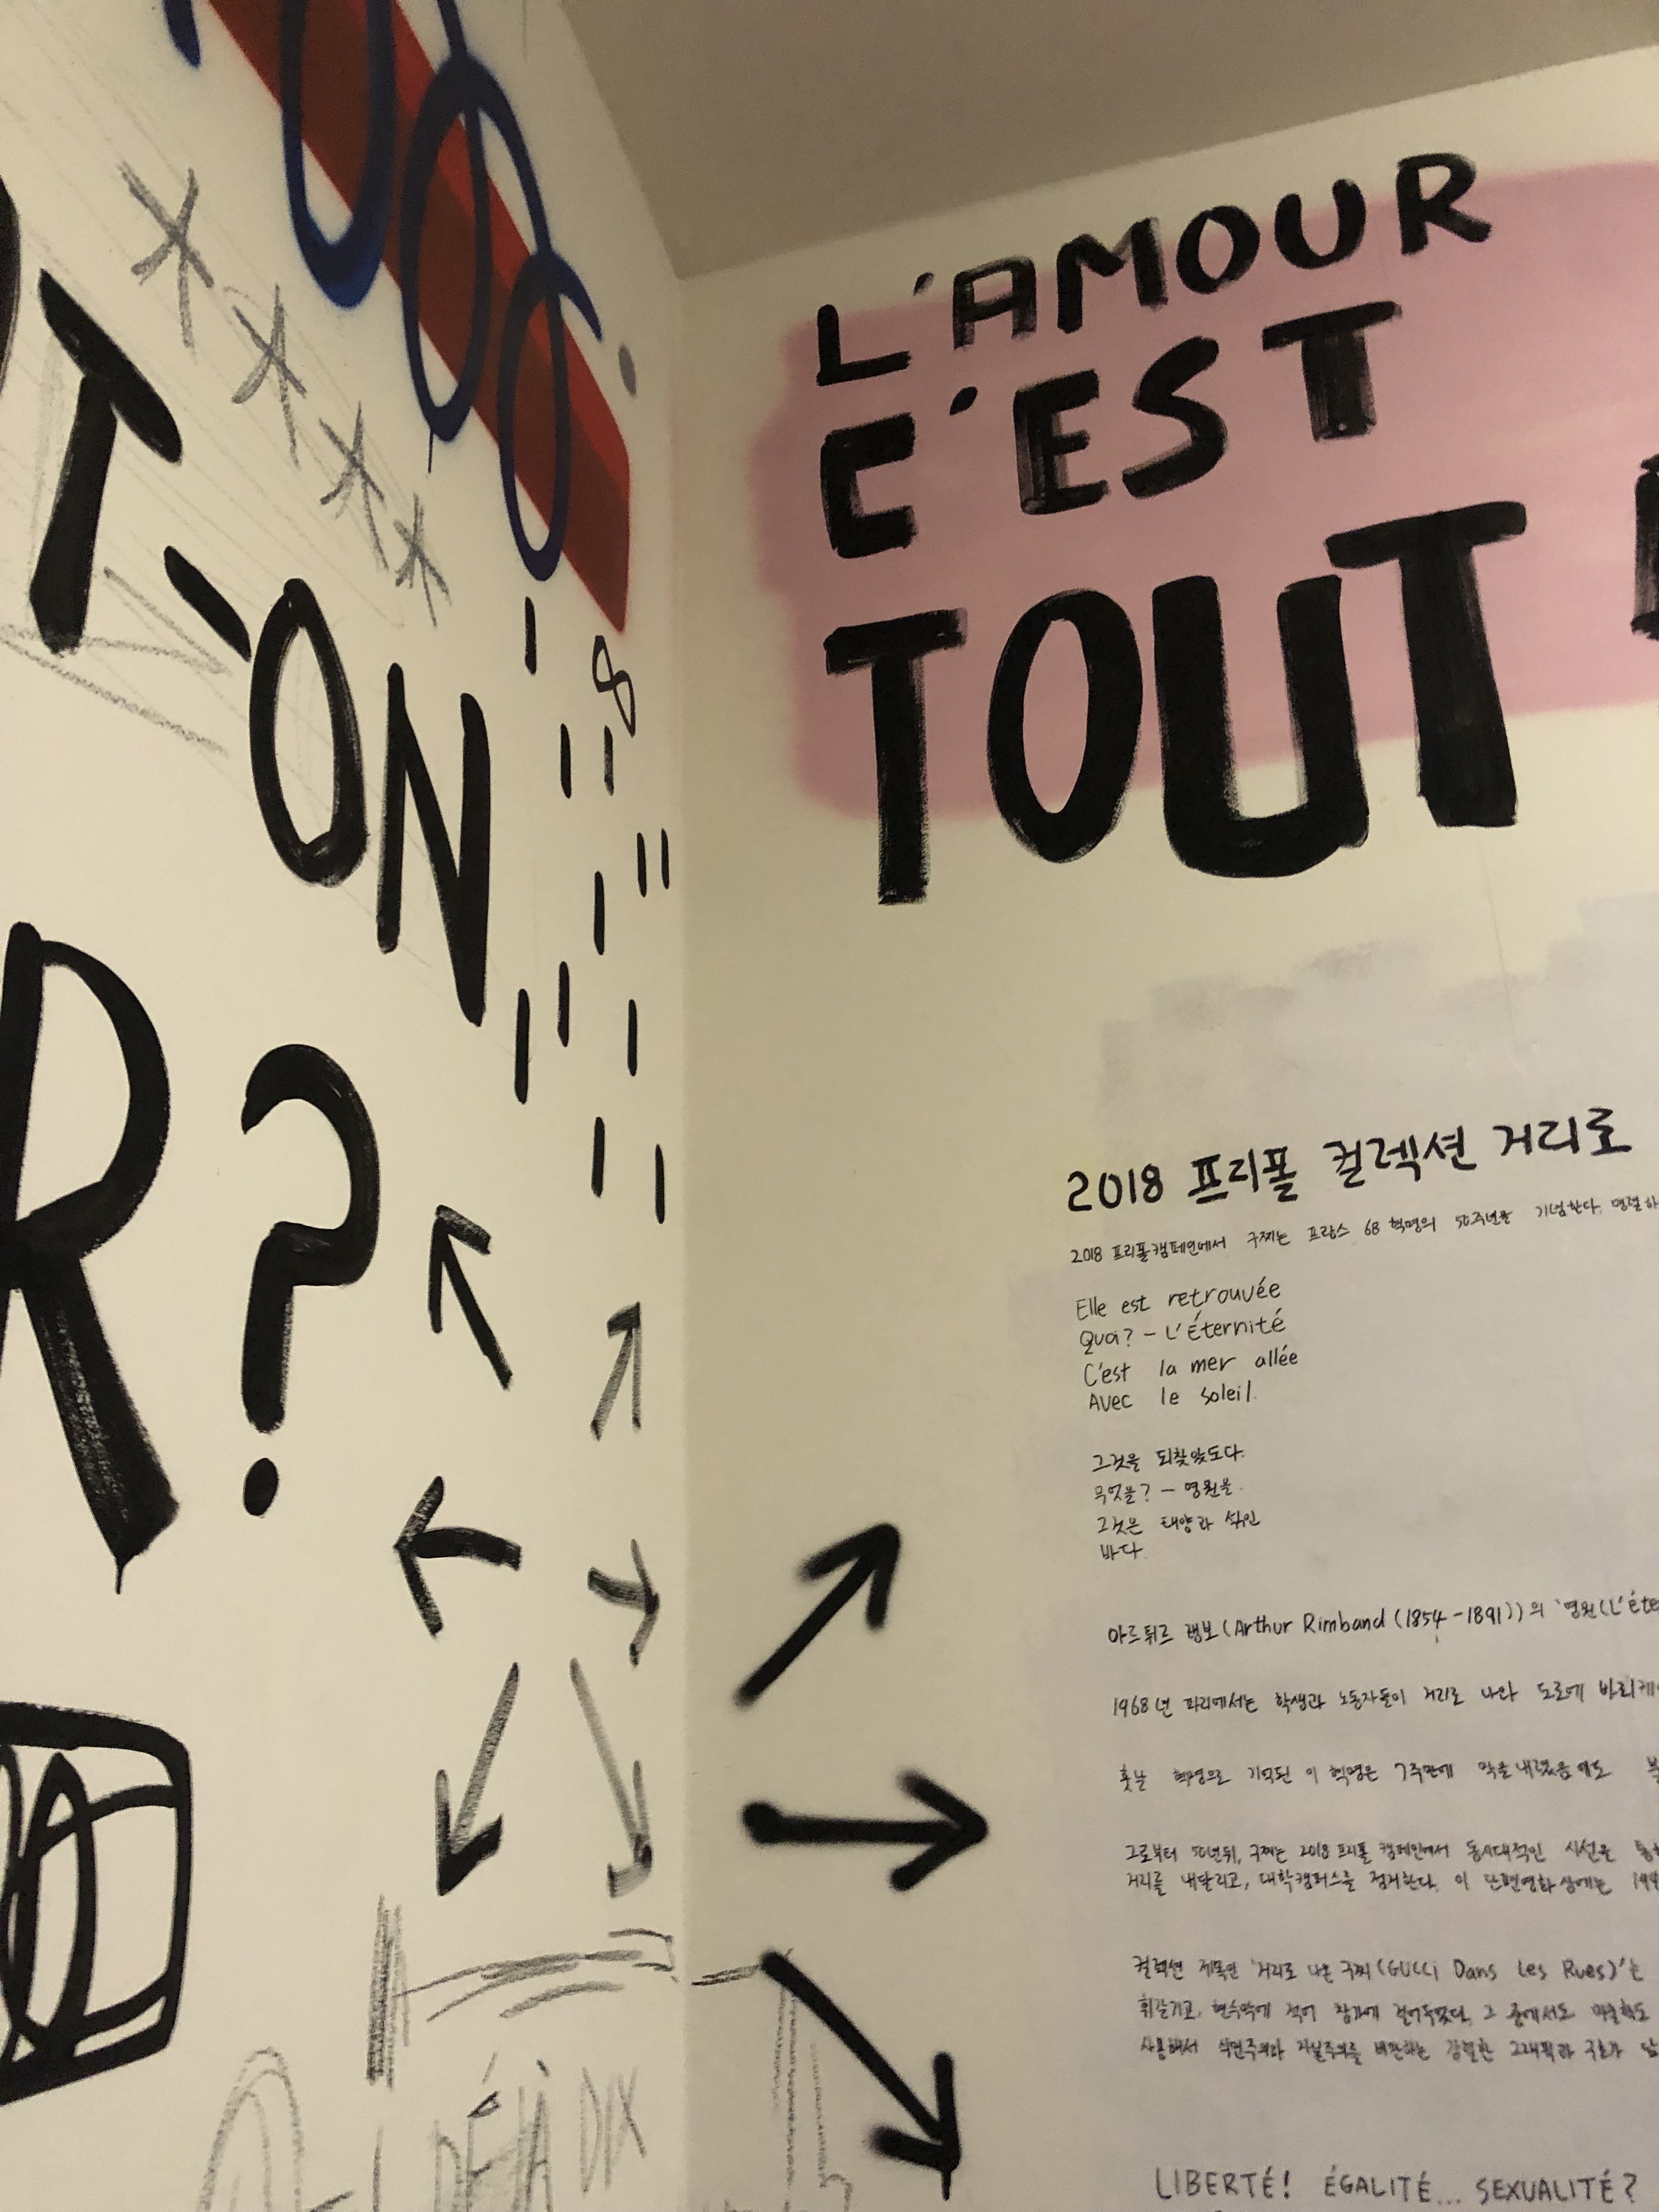 T'ON
R?
8
DÉJÀ DIX
L'AMOUR
C'EST
TOUT
2018 프리폴 컬렉션 거리로
2018 프리폴 캠페인에서 구찌는 프랑스 68 혁명의 50주년을 기념한다.
Elle est retrouvée
Quoi? - L'Éternité
C'est la mer allée
Avec le soleil.
그것을 되찾았도다.
무엇을? - 영원을.
그것은 태양과 섞인
바다.
아르튀르 랭보 (Arthur Rimband (1854-1891))의 '영원(L'éte
1968년 파리에서는 학생과 노동자들이 거리로 나와 도로에 바리케
훗날 혁명으로 기억된 이 혁명은 7주만에 막을 내렸음에도
그로부터 50년뒤, 구찌는 2018 프리폴 캠페인에서 동시대적인 시선을
거리를 내달리고, 대학캠퍼스를 점거한다. 이 단편영화상에는
컬렉션 제목인 '거리로 나온 구찌 (GUCCI Dans Les Rues)'는
휘갈기고, 현수막에 적어 창가에 걸어두었다. 그 중에서도
사용해서 식민주의와 자본주의를 비판하는 강렬한 그래픽과 구호가
LIBERTÉ! ÉGALITÉ... SEXUALITÉ?